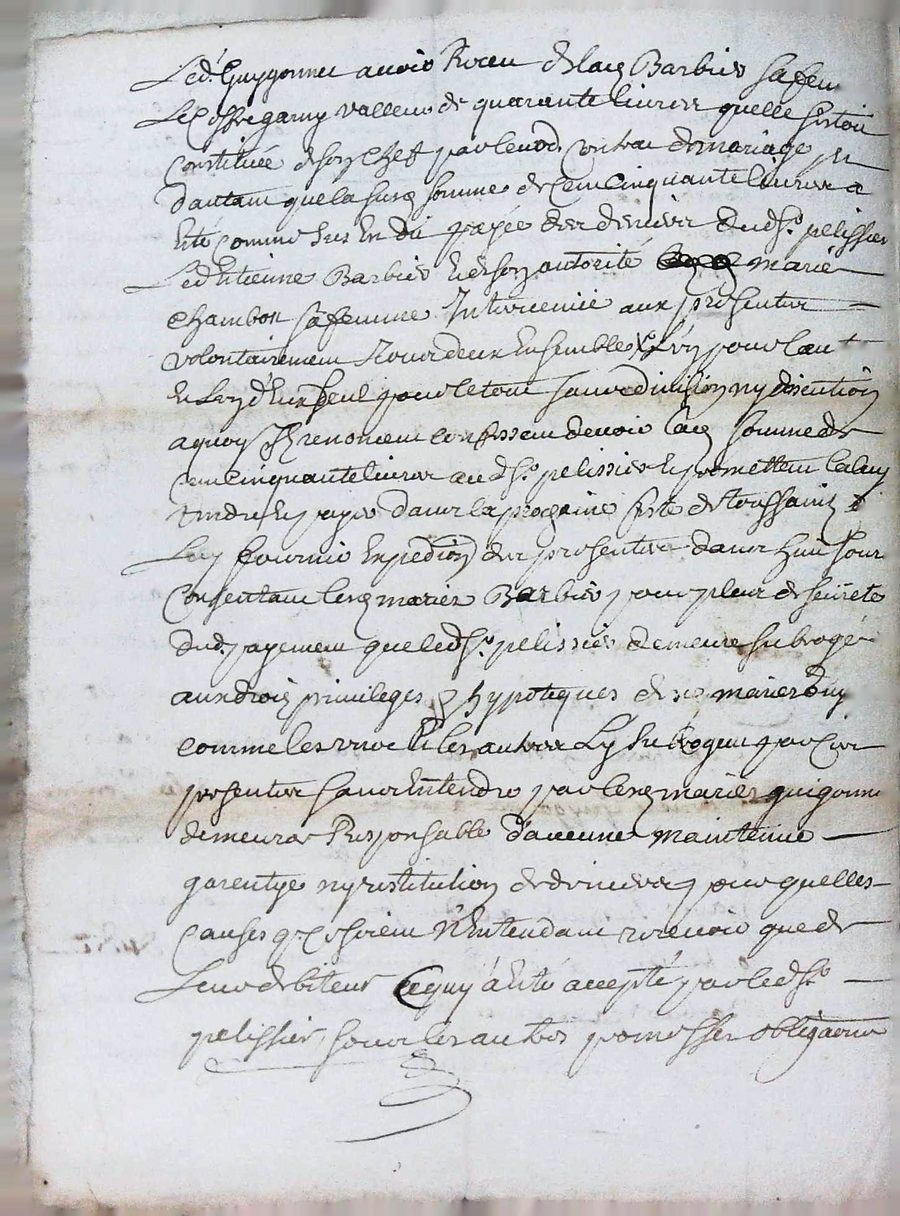 Led guygonnet avoir Receu de lad Barbier sa fem
Le Coffre garny valleur de quarante livres quelle sestoit
Constituée de son chef par le susd contrat de mariage, et
dautant que la susd somme de Cent Cinquante livres a
Esté comme sus Est dit payée des deniers dud sr pelissier
Led Etienne Barbier et de son autorité marie
Chambon sa femme Intervenue aux presentes
volontairement Tous deux Ensembles Lun pour laut
et Lun d'Eux seul pour le tout sans division ny discution
a quoy Ils renoncent confessent devoir lad somme de
Cent Cinquante livres aud sr pelissier et promettent la luy
rendre et payer dans la prochaine feste de Toussaint &
Luy fournir Expedion des presentes dans huit jour
Consentant lesd mariés Barbier pour plus de seureté
dud payement que led sr pelissier demeure subrogé
aux droits privileges & hypoteques desd mariés Guy
comme les uns et les autres L'y subrogent par Ces
presentes sans Entendre par lesd mariés guigonnet
demeurer Responsable d'aucune maintenue
garentye ny restitution de deniers pour quelles
Causes que Ce soient N'Entendant recevoir que de
Leur debiteur Ce quy a Esté accepté par led sr
pelissier, sous les autres promesses obligaons